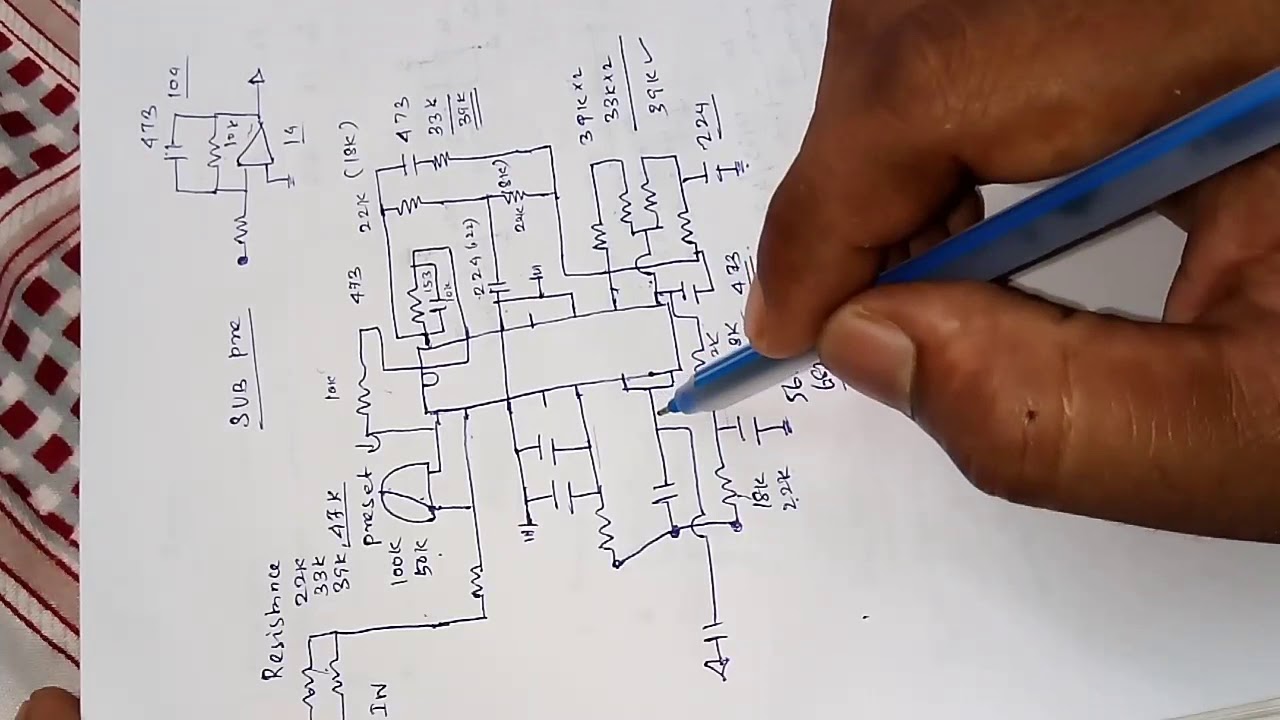 473
104
10K
14
SUB pre
22K (18K)
473
33K
39K
39K×2
33K×2
39K
224
473
153
10K
.224 (.22)
22K
(18K)
473
10K
Resistance
22K
33K
39K, 47K
preset
100K
50K
IN
18K
2.2K
56